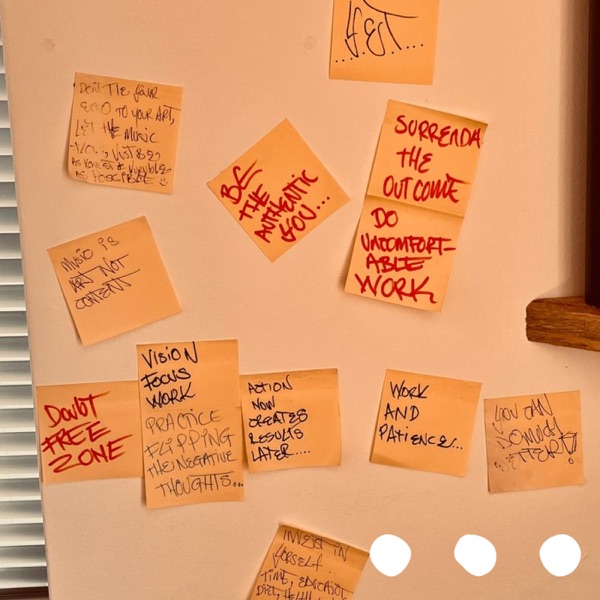 ...F.E.T....
DON'T TIE YOUR
EGO TO YOUR ART,
LET THE MUSIC
JUST BE
AS HONEST &
AS POSSIBLE
BE
THE
AUTHENTIC
YOU...
SURRENDA
THE
OUTCOME
DO
UNCOMFORT-
ABLE
WORK
MUSIC IS
ART NOT
CONTENT
DOUBT
FREE
ZONE
VISION
FOCUS
WORK
PRACTICE
FLIPPING
THE NEGATIVE
THOUGHTS...
ACTION
NOW
CREATES
RESULTS
LATER....
WORK
AND
PATIENCE...
YOU CAN
INVEST IN
YORSELF
TIME, EDUCATION
DIET, HEALTH